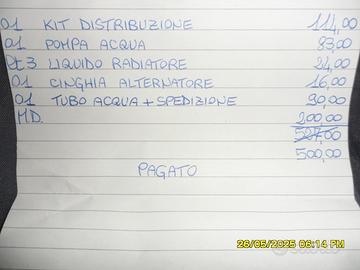 01 KIT DISTRIBUZIONE 114,00
01 POMPA ACQUA 83,00
Lt 3 LIQUIDO RADIATORE 24,00
01 CINGHIA ALTERNATORE 16,00
01 TUBO ACQUA + SPEDIZIONE 90,00
MD. 200,00
527,00
500,00
PAGATO
26/05/2025 06:14 PM